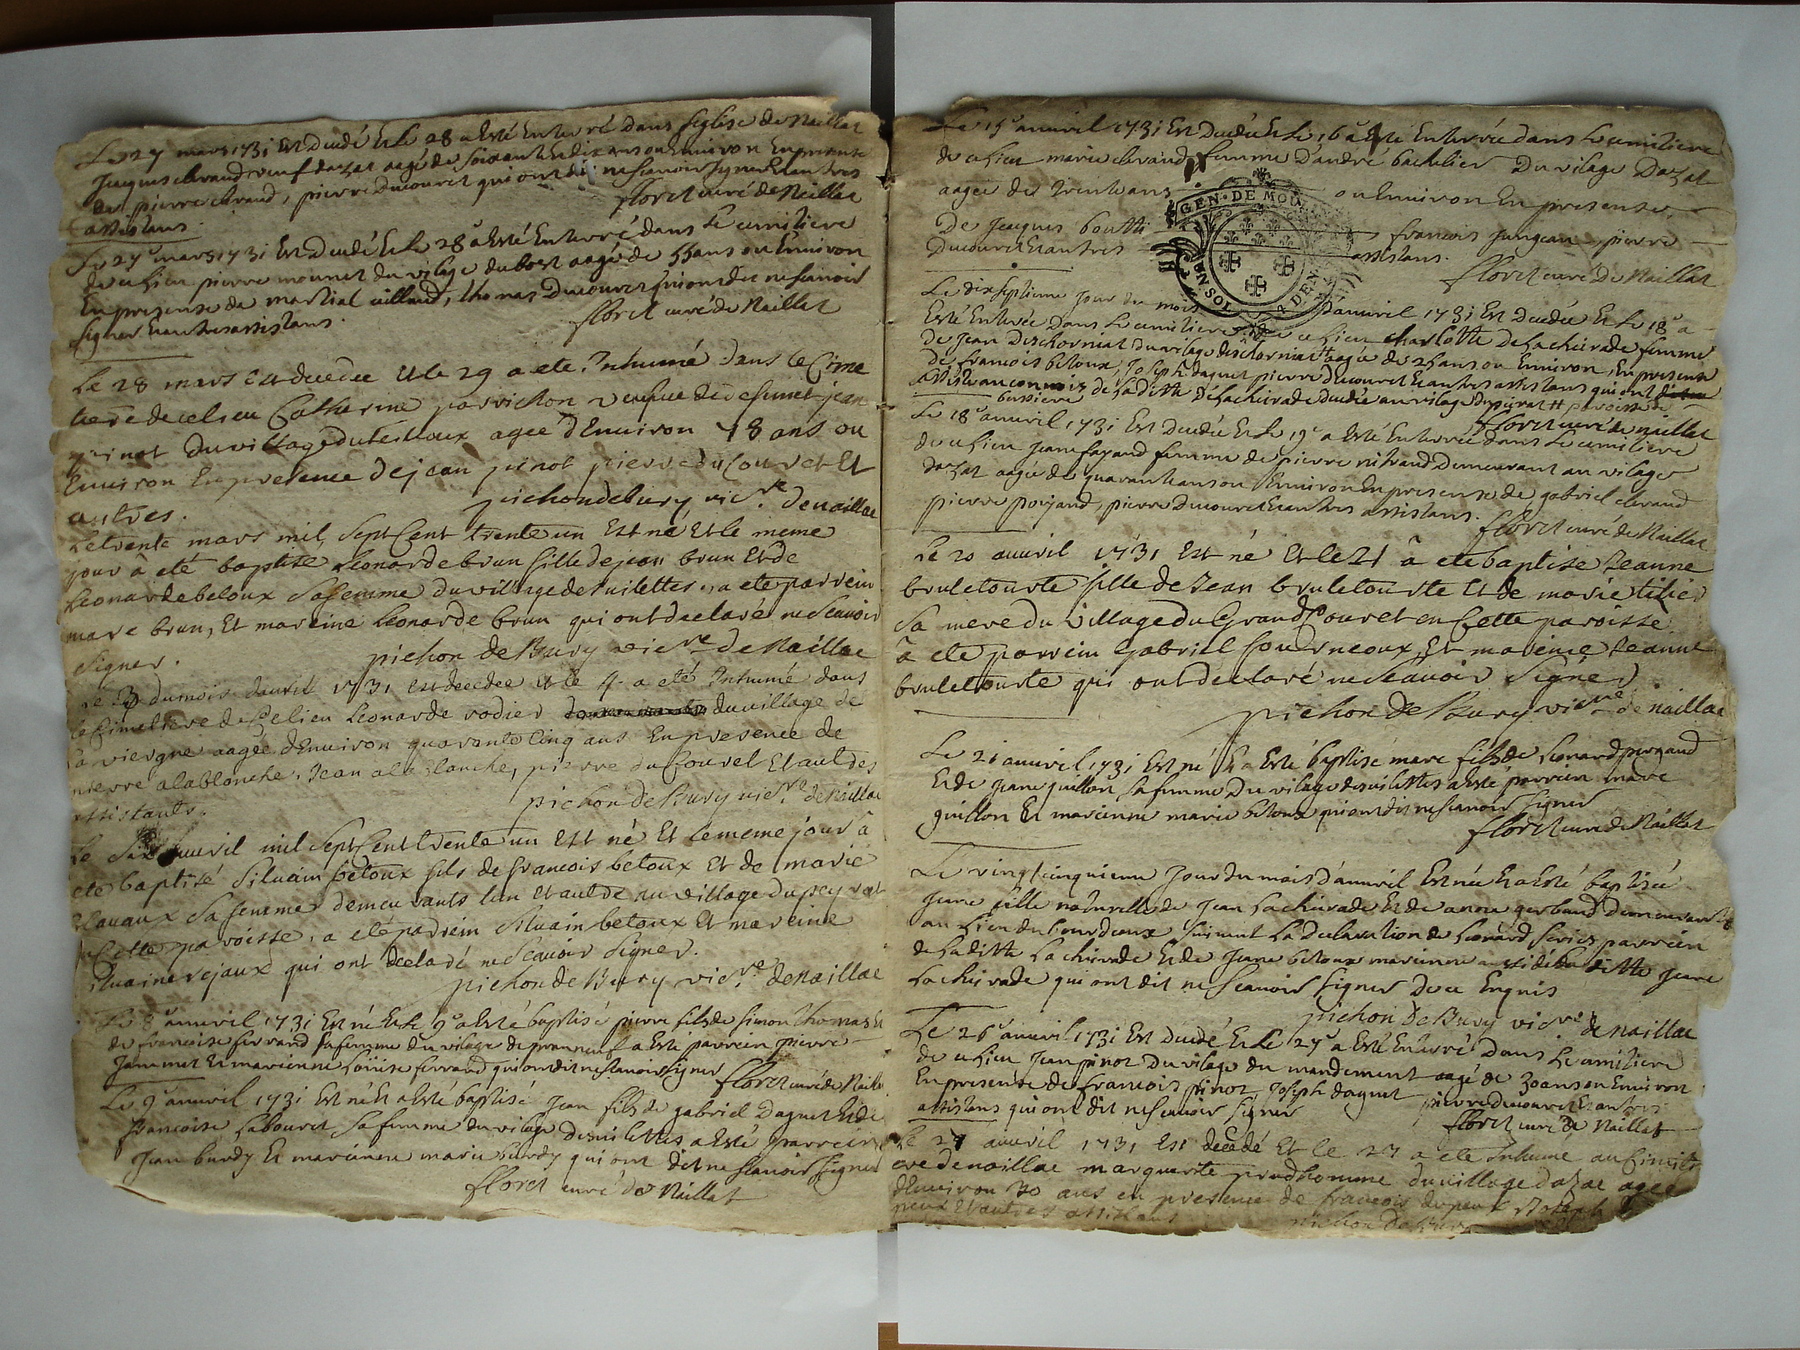 Le 27 mars 1731 est decedé et le 28 a esté enterré dans leglise de Naillat
Jacques clerand veuf dazat aagé de soixante et dix ans ou environ en presense
de pierre clerand, pierre ducouret qui ont dit ne scavoir signer et autres
assistans. floret curé de Naillat
Le 27e mars 1731 est decedé et le 28e a esté enterré dans le cimitiere
de ce lieu pierre mounet du vilage du bost aagé de ans ou environ
en presense de martial villard, thomas ducouret qui ont dit ne scavoir
signer et autres assistans. floret curé de Naillat
Le 28 mars est decedée et le 29 a eté inhumé dans le Cime
tiere de ce lieu Catherine parvichon veufue de defunct jean
pinot du village duteilloux agee d'Environ 78 ans ou
Environ En presence de jean pinot pierre du Couret Et
autres. pichon de Bury vicre de naillac
Le trente mars mil sept Cent trente un Est né, Et le meme
jour â eté baptisé Leonarde brun fille de jean brun Et de
Leonarde betoux sa femme du village de tuilettes, a eté parrein
marc brun, Et mareine Leonarde brun qui ont declaré ne Scavoir
Signer. pichon de Bury vicre de Naillac
Le 3 du mois davril 1731 est decedee et le 4 a eté Inhumé dans
le Cimetiere de Ce lieu Leonarde rodier du village de
la viergne aagée d'Environ quarante Cinq ans En presence de
pierre alablanche, Jean alablanche, pierre du Couret Et autres
assistants. pichon de Bury vicre de Naillac
Le Six auvril mil Sept Cent trente un Est né Et le meme jour â
eté baptisé Siluain betoux fils de francois betoux Et de marie
lavaux Sa femme demeurants l'un Et autre au village du peyrat
en Cette paroisse, a eté parrein Siluain betoux Et mareine
Siluaine rejaux qui ont declaré ne Scavoir Signer.
pichon de Bury vicre de Naillac
Le 8e auvril 1731 est né et le 9e a esté baptisé pierre fils de simon thomas et
de francoise ferrand sa femme du vilage de a esté parrein pierre
Jammet et marienne Louise ferrand qui ont dit ne scavoir signer
floret curé de Naillat
Le 9e auvril 1731 est né et a esté baptisé jean fils de gabriel Daguet et de
francoise labouret sa femme du vilage desuilettes a esté parrein
jean burdy et marienne marie burdy qui ont dit ne scavoir signer
floret curé de Naillat
Le 15e auvril 1731 est decedée et le 16e a esté enterrée dans le cimitiere
de ce lieu marie clerand femme d'andre bachelier du vilage dazat
aagée de trente ans ou environ en presense
GEN·DE MOU
De jacques boutti francois jangean, pierre
ducouret et autres assistans.
floret curé de Naillat
Le dix septieme jour du mois d'auvril 1731 est decedée et le 18e a
esté enterrée dans le cimitiere de ce lieu charlotte delachirade femme
de jean deschorniat du vilage aagée de ans ou environ, en presense
de francois betoux, joseph daguet pierre ducouret et autres assistans qui ont
de ladite delachirade decedée au vilage dupeirat paroisse de
floret curé de naillat
Le 18e auvril 1731 est decedée et le 19e a esté enterrée dans le cimitiere
de ce lieu jeane fayand femme de pierre nitrand demeurant au vilage
dazat aagée de quarante ans ou environ en presense de gabriel clerand
pierre poijand, pierre ducouret et autres assistans.
floret curé de Naillat
Le 20 auvril 1731 Est né Et le 21 â eté baptisé Jeanne
bruletourte fille de Jean bruletourte Et de marie tixier
Sa mere du village du Grand Couret en Cette paroisse
â eté parrein gabriel Fourneoux, Et mareine Jeanne
bruletourte qui ont declaré ne Scavoir Signer
pichon de Bury vicre de naillac
Le 21 auvril 1731 est né et a esté baptisé marc fils de Leonard
et de jeane guillon sa femme du vilage desuilettes a esté parrein marc
guillon et marienne marie betoux qui ont dit ne scavoir signer
floret curé de Naillat
Le vingt cinquieme jour du mois d'auvril est née et a esté baptisée
jeane fille naturelle de jean lachirade et de anne gerbaud demeurant
au lieu du bourdeoux suivant la declaration de Leonard parrein
de ladite lachirade et de jeane betoux marienne aussi de ladite jeane
lachirade qui ont dit ne scavoir signer de ce enquis
pichon de Bury vicre de naillac
Le 26e auvril 1731 est decedé et le 27e a esté enterré dans le cimitiere
de ce lieu jean pinot du vilage du mandement aagé de 30 ans ou environ
en presense de francois pinot joseph daguet pierre ducouret et autres
assistans qui ont dit ne scavoir signer floret curé de Naillat
Le 27 auvril 1731 est decedé Et le 27 a eté Inhumé au Cimiti
ere de naillac marguerite prudhomme du village dazac agee
d'Environ 30 ans en presence de francois Joseph
Et autres assistans pichon de Bury